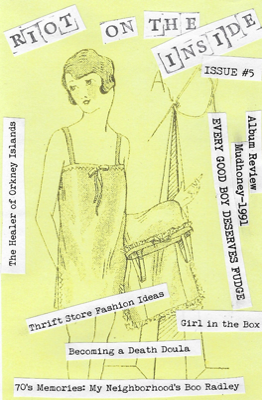 RIOT ON THE
INSIDE
ISSUE #5
The Healer of Orkney Islands
Album Review
Mudhoney-1991
EVERY GOOD BOY DESERVES FUDGE
Thrift Store Fashion Ideas
Girl in the Box
Becoming a Death Doula
70's Memories: My Neighborhood's Boo Radley